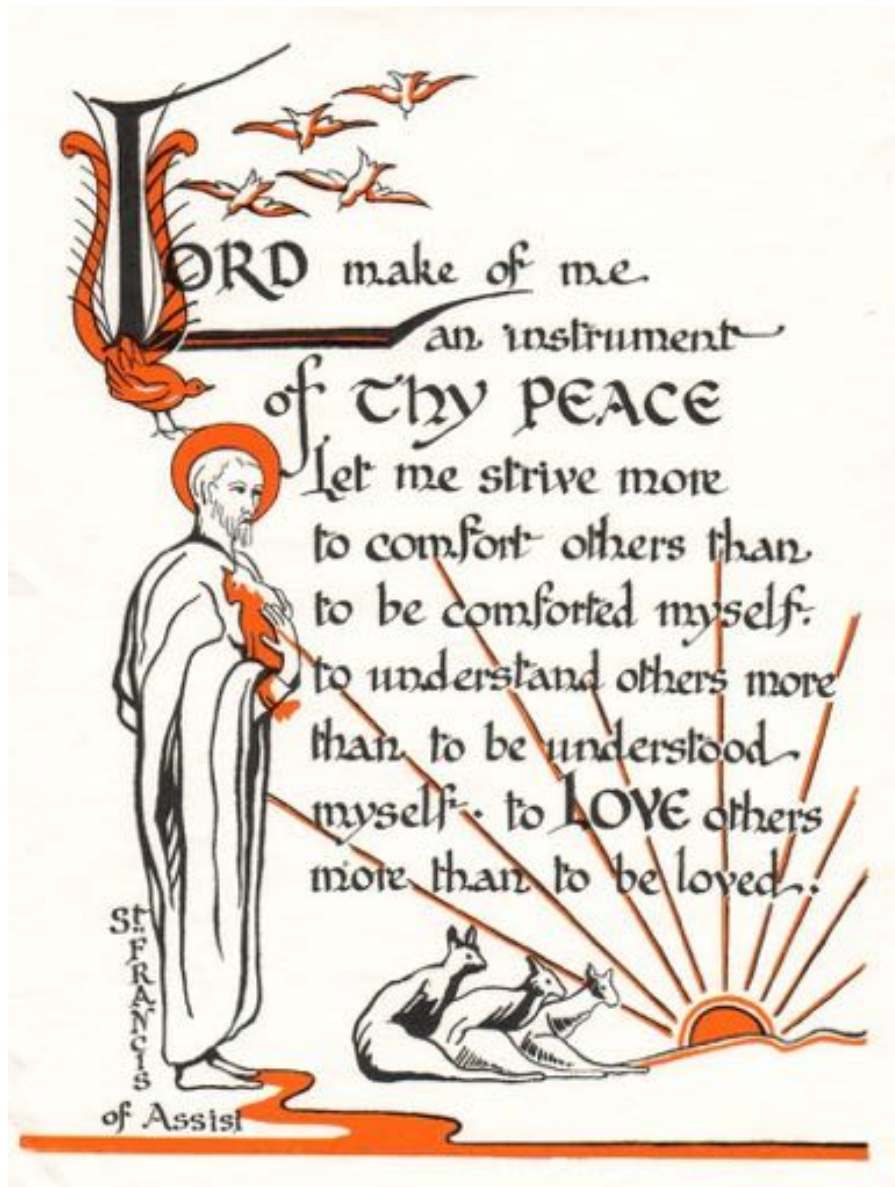 LORD make of me
an instrument
of Thy PEACE
Let me strive more
to comfort others than
to be comforted myself:
to understand others more
than to be understood
myself: to LOVE others
more than to be loved..
St. FRANCIS
of Assisi